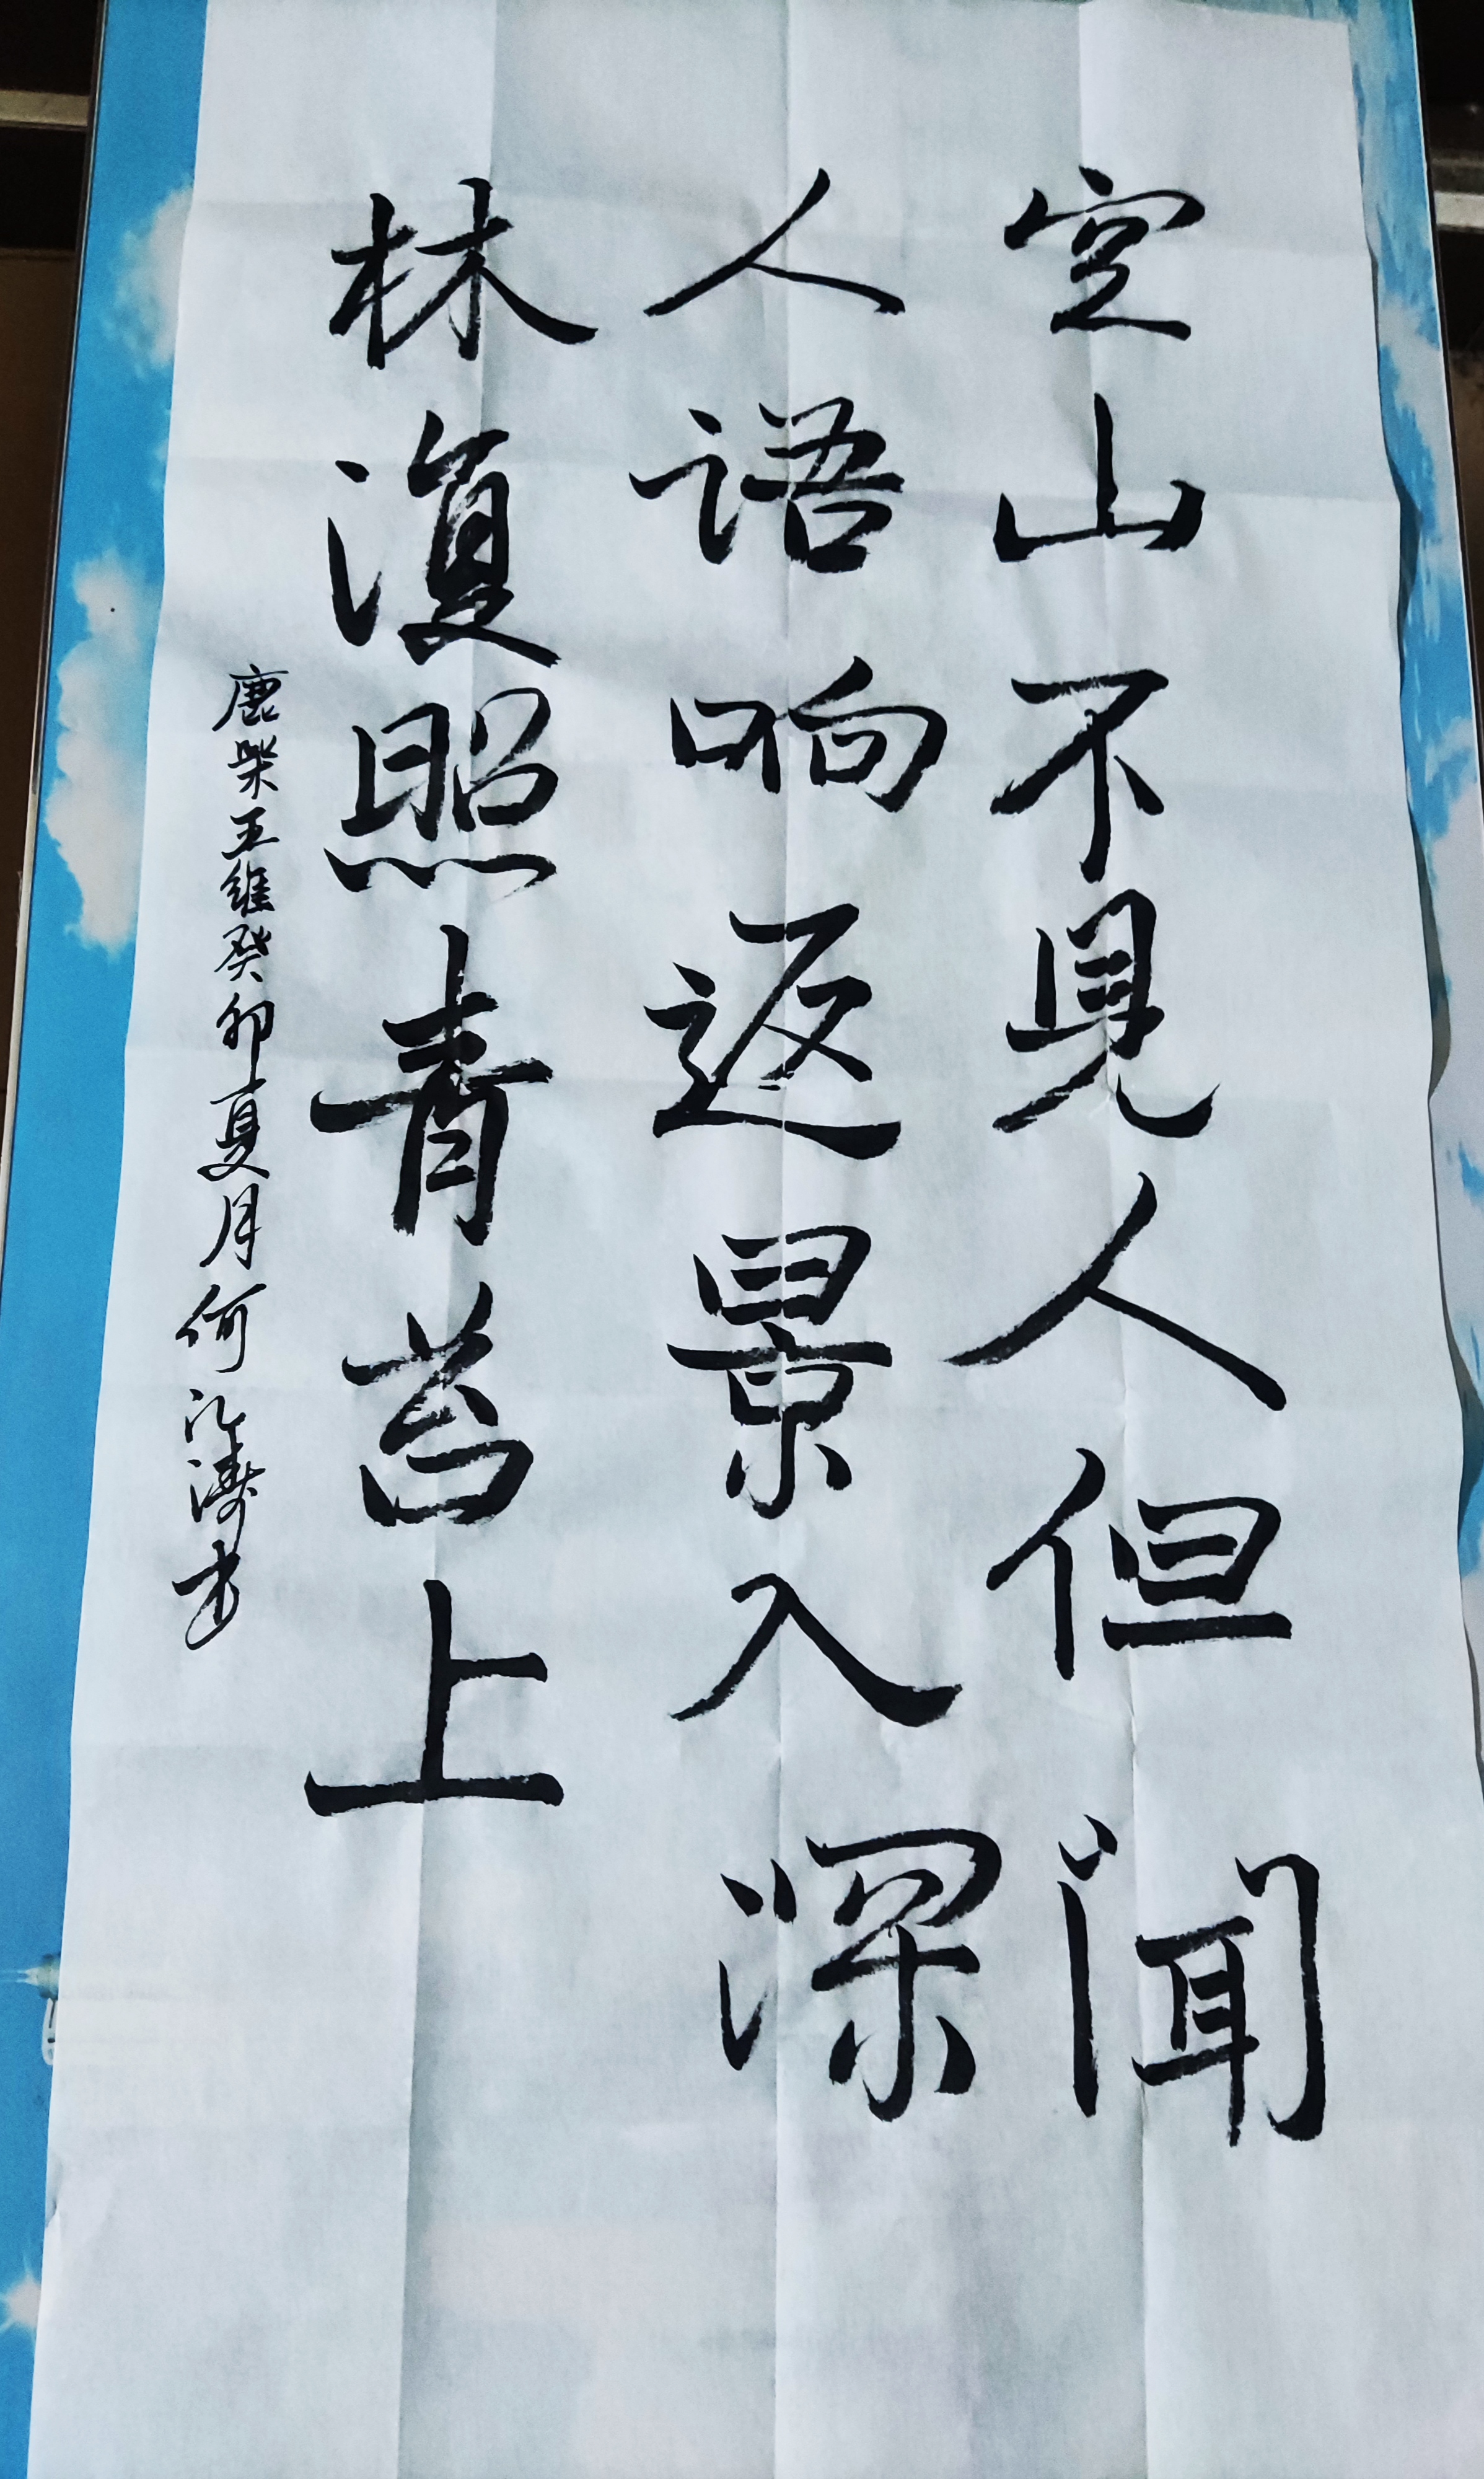 空山不見人但闻
人语响返景入深
林復照青苔上
鹿柴王维癸卯夏月何 涛书